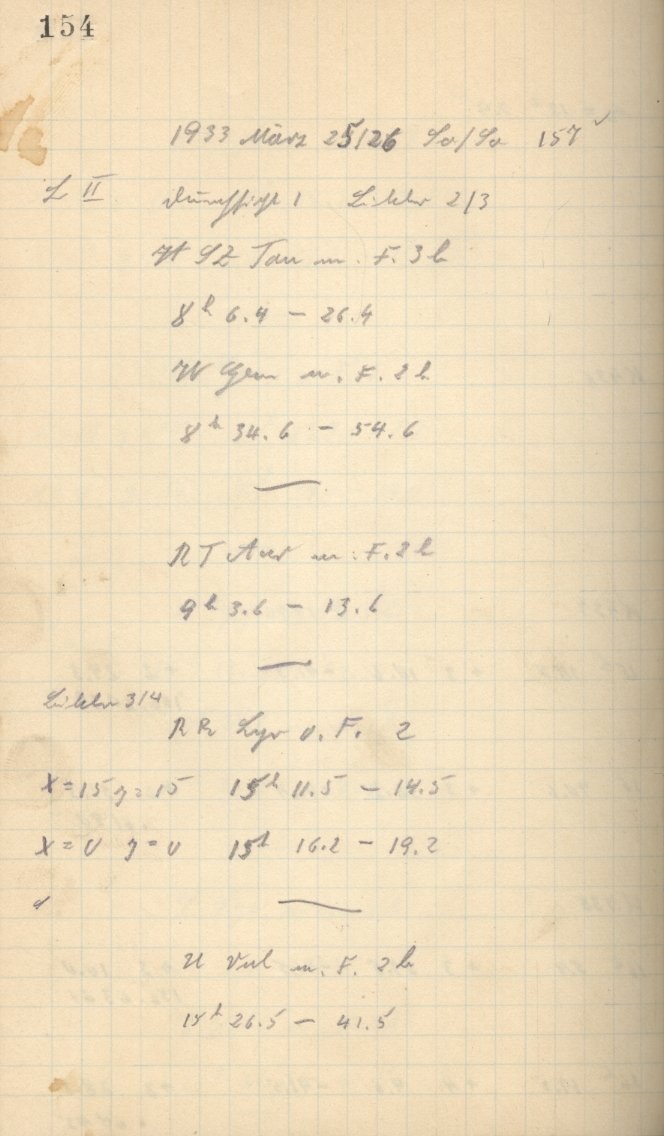 154
1933 März 25/26 Sa/So 157
L II Durchsicht 1 Bilder 2/3
SZ Tau m. F. 3 b
8h 6.4 – 26.4
W Gem m. F. 2 b
8h 34.6 – 54.6
RT Aur m. F. 2 b
9h 3.6 – 13.6
Bilder 3/4
RR Lyr o. F. 2
X=15 y=15 15h 11.5 – 14.5
X=0 y=0 15h 16.2 – 19.2
U Vul m. F. 2 b
15h 26.5 – 41.5